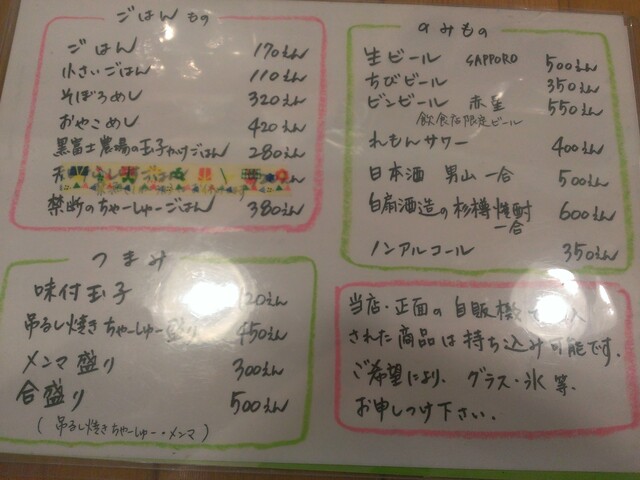 ごはんもの
ごはん 170えん
小さいごはん 110えん
そぼろめし 320えん
おやこめし 420えん
黒富士農場の玉子かけごはん 280えん
禁断のちゃーしゅーごはん 380えん
つまみ
味付玉子 20えん
吊るし焼きちゃーしゅー盛り 450えん
メンマ盛り 300えん
合盛り 500えん
(吊るし焼きちゃーしゅー・メンマ)
のみもの
生ビール SAPPORO 500えん
ちびビール 350えん
ビンビール 赤星 550えん
飲食店限定ビール
れもんサワー 400えん
日本酒 男山 一合 500えん
白扇酒造の杉樽焼酎 600えん
一合
ノンアルコール 350えん
当店・正面の自販機で
された商品は持ち込み可能です.
ご希望により、グラス・氷等.
お申しつけ下さい.